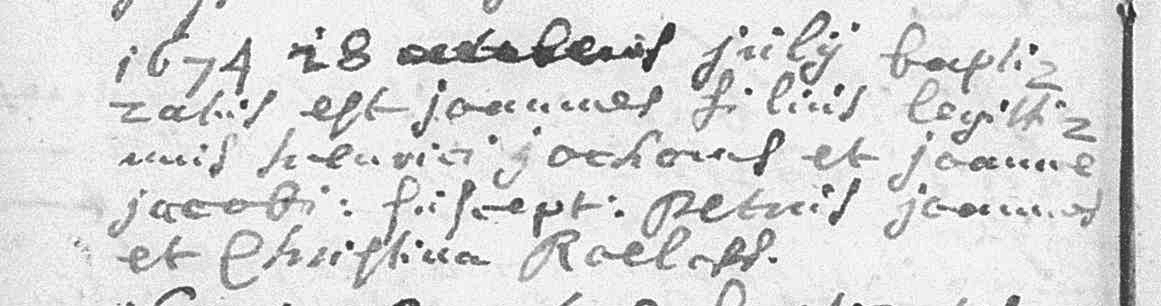 1674 28 octobris july bapti=
zatus est joannes filius legitti=
mus henrici jochems et joanne
jacobi: suscept: petrus joannes
et Christina Roeloffs.